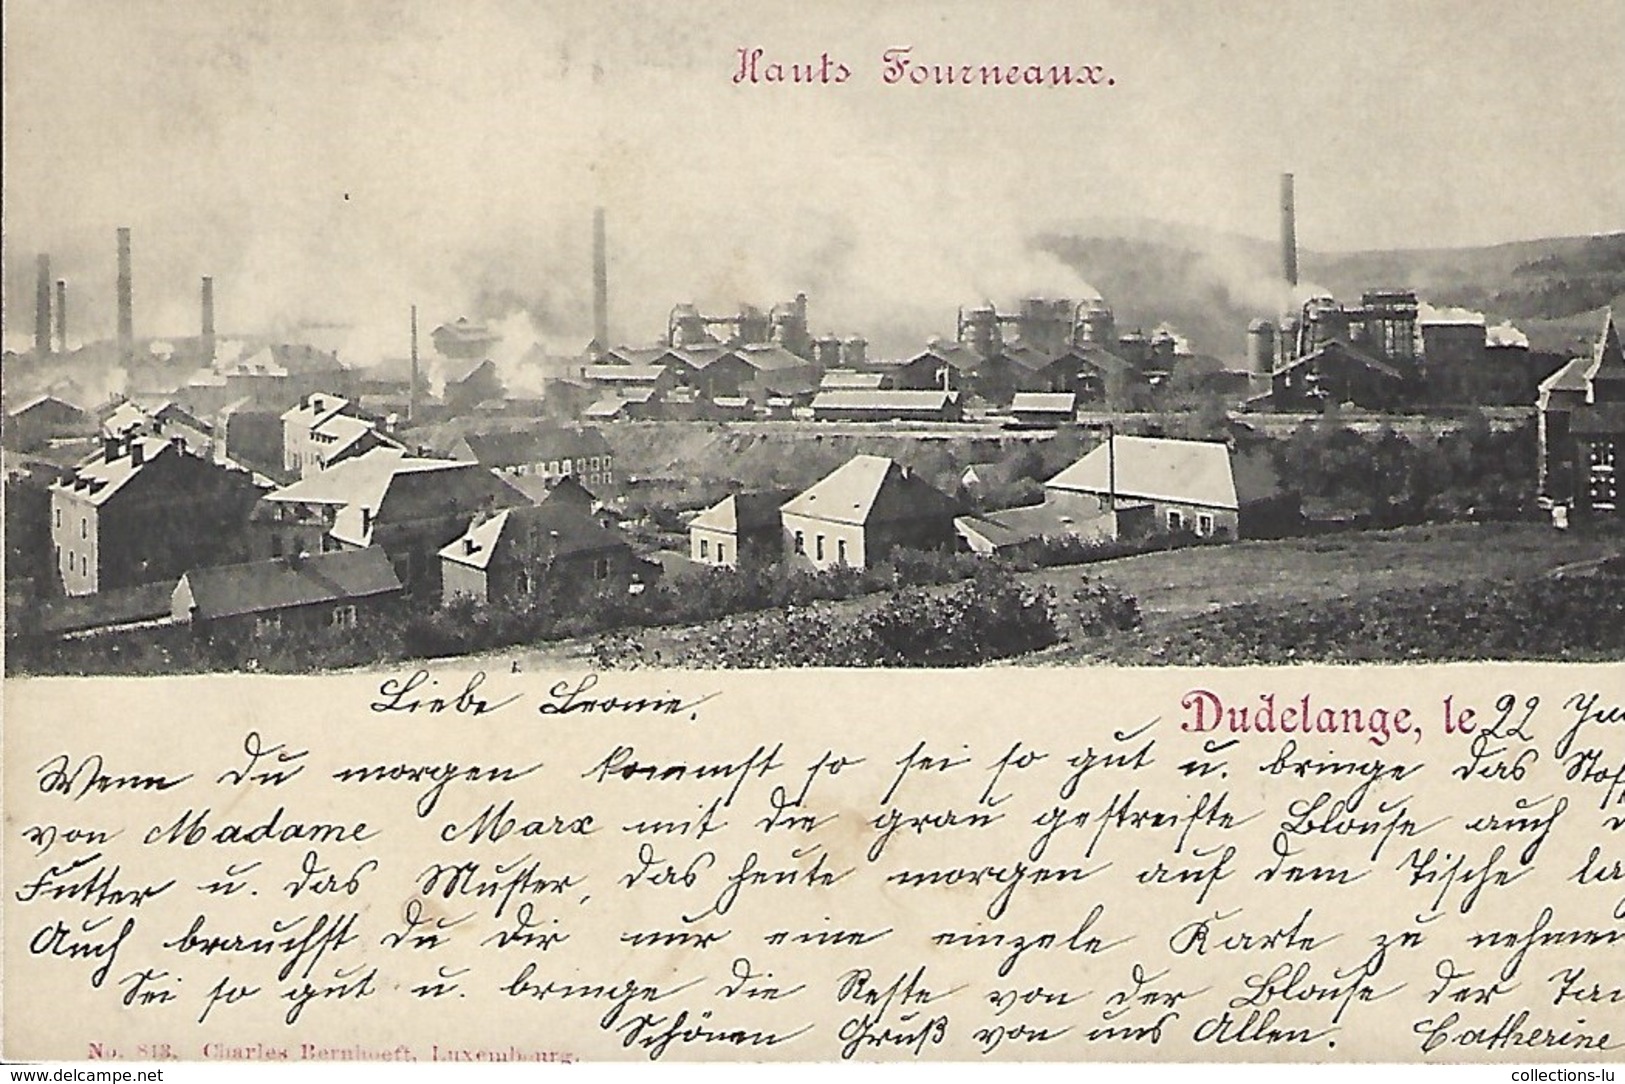 Hauts Fourneaux.
Liebe Leonie.
Dudelange, le 22
Wenn Du morgen kommst so sei so gut u. bringe das
von Madame Marx mit die grau gestreifte Blouse auch
Futter u. das Muster, das heute morgen auf dem Tische
Auch brauchst Du Dir nur eine einzele Karte zu nehmen
Sei so gut u. bringe die Reste von der Blouse der
Schönen Gruß von uns Allen. Catherine
No. 813. Charles Bernhoeft, Luxembourg.
https://www.delcampe.net
collections-lu